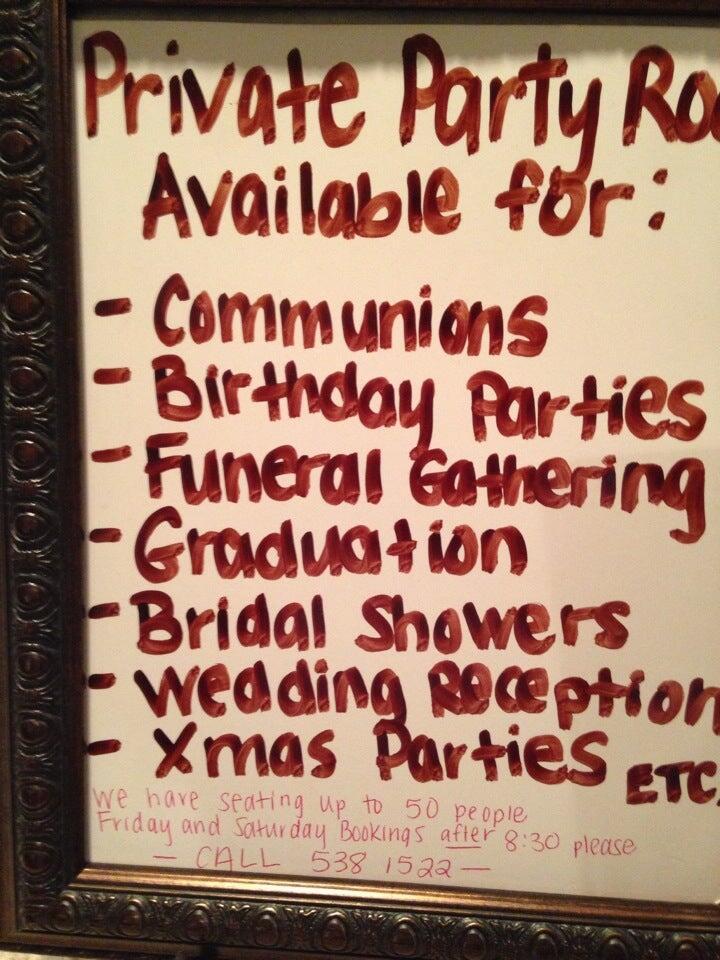 Private Party Roo
Available for:
- Communions
- Birthday Parties
- Funeral Gathering
- Graduation
- Bridal Showers
- Wedding Reception
- Xmas Parties ETC.
We have seating up to 50 people
Friday and Saturday Bookings after 8:30 please
- CALL 538 1522 -